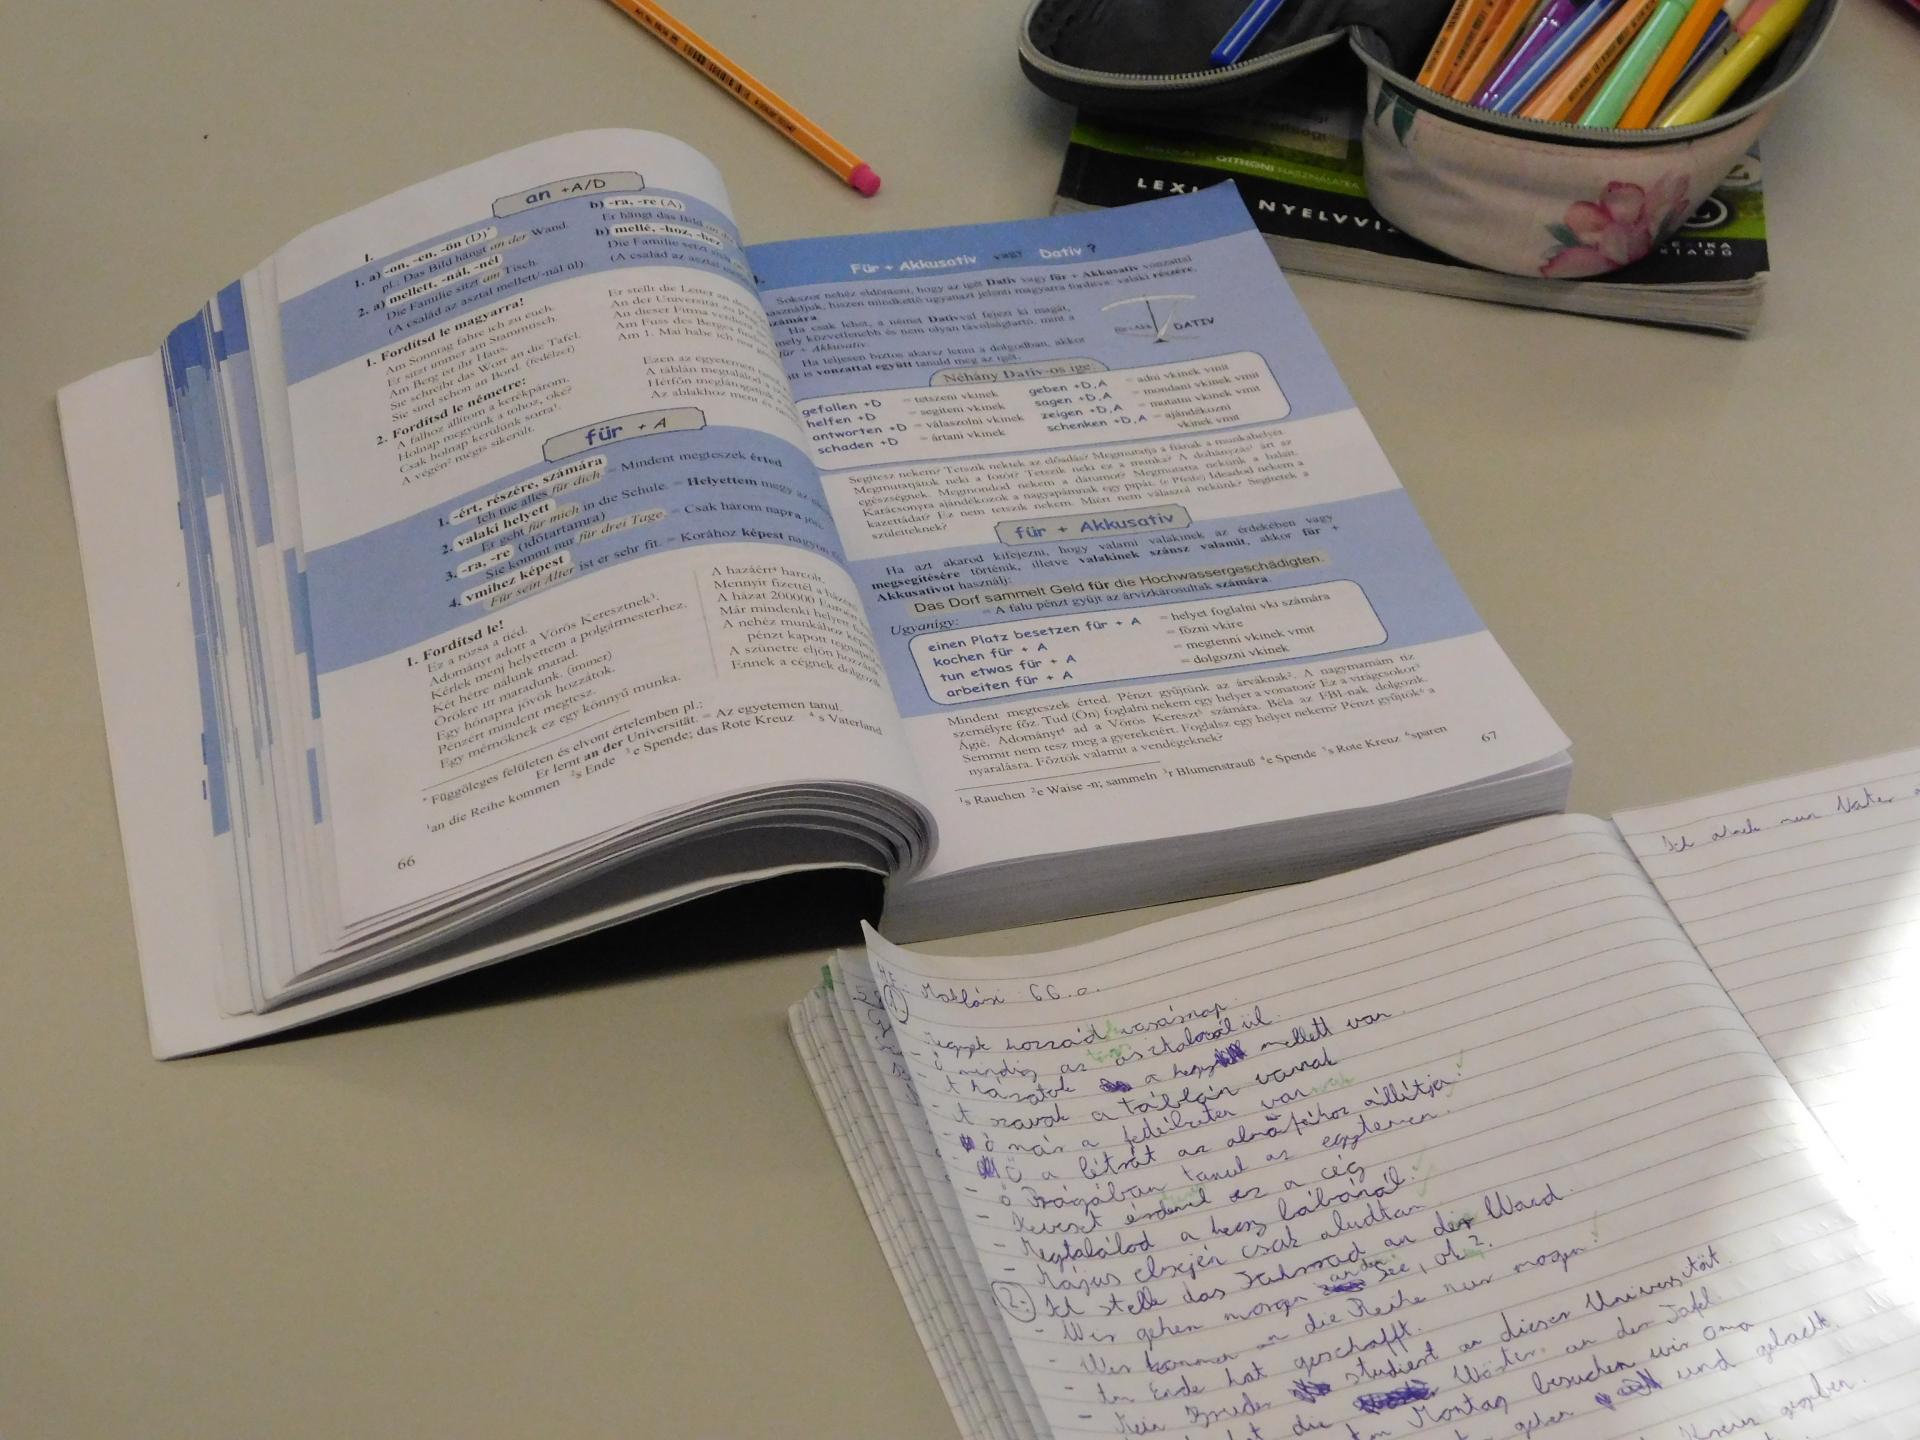 an +A/D
1.
1. a) -on, -en, -ön (D)*
pl.: Das Bild hängt an der Wand.
2. a) mellett, -nál, -nél
Die Familie sitzt am Tisch.
(A család az asztal mellett/-nál ül).
b) -ra, -re (A)
Er hängt das Bild
b) mellé, -hoz, -hez
Die Familie setzt
(A család az asztal
1. Fordítsd le magyarra!
Am Sonntag fahre ich zu euch.
Er sitzt immer am Stammtisch.
Am Berg ist ihr Haus.
Sie schreibt das Wort an die Tafel.
Sie sind schon an Bord. (fedélzet)
2. Fordítsd le németre:
A falhoz állítom a kerékpárom.
Holnap megyünk a tóhoz, oké?
Csak holnap kerülünk sorra¹.
A végén² mégis sikerült.
Er stellt die Leiter an
An der Universität zu
An dieser Firma verdient
Am Fuss des Berges
Am 1. Mai habe ich
Ezen az egyetemen
A táblán megtalálod
Hétfőn meglátogatjuk
Az ablakhoz ment és
für + A
1. -ért, részére, számára
Ich tue alles für dich. = Mindent megteszek érted.
2. valaki helyett
Er geht für mich in die Schule. = Helyettem megy az
3. -ra, -re (időtartamra)
Sie kommt nur für drei Tage. = Csak három napra
4. vmihez képest
Für sein Alter ist er sehr fit. = Korához képest nagyon
1. Fordítsd le!
Ez a rózsa a tiéd.
Adományt adott a Vörös Keresztnek³.
Kérlek menj helyettem a polgármesterhez.
Két hétre nálunk marad.
Örökre itt maradunk. (immer)
Egy hónapra jövök hozzátok.
Pénzért mindent megtesz.
Egy mérnöknek ez egy könnyű munka.
A hazáért⁴ harcolt.
Mennyit fizettél a
A házat 200000
Már mindenki helyett
A nehéz munkához
pénzt kapott
A szünetre eljön
Ennek a cégnek
* Függőleges felületen és elvont értelemben pl.:
Er lernt an der Universität. = Az egyetemen tanul.
¹an die Reihe kommen ²s Ende ³e Spende; das Rote Kreuz ⁴s Vaterland
66
Für + Akkusativ vagy Dativ ?
Sokszor nehéz eldönteni, hogy az igét Dativ vagy für + Akkusativ vonzattal
használjuk, hiszen mindkettő ugyanazt jelenti magyarra fordítva: valaki részére,
számára.
Ha csak lehet, a német Datívval fejezi ki magát,
mely közvetlenebb és nem olyan távolságtartó, mint a
für + Akkusativ.
Ha teljesen biztos akarsz lenni a dolgodban, akkor
itt is vonzattal együtt tanuld meg az igét.
DATIV
Néhány Dativ-os ige:
gefallen +D = tetszeni vkinek
helfen +D = segíteni vkinek
antworten +D = válaszolni vkinek
schaden +D = ártani vkinek
geben +D,A = adni vkinek vmit
sagen +D,A = mondani vkinek vmit
zeigen +D,A = mutatni vkinek vmit
schenken +D,A = ajándékozni
vkinek vmit
Segítesz nekem? Tetszik nektek az előadás? Megmutatja a fiának a munkahelyét.
Megmutatjátok neki a fotót? Tetszik neki ez a munka? A dohányzás¹ árt az
egészségnek. Megmondod nekem a dátumot? Megmutatta nekünk a
Karácsonyra ajándékozok a nagyapámnak egy pipát. (e Pfeife) Ideadod nekem a
kazettádat? Ez nem tetszik nekem. Miért nem válaszol nekünk? Segítetek a
szüleiteknek?
für + Akkusativ
Ha azt akarod kifejezni, hogy valami valakinek az érdekében vagy
megsegítésére történik, illetve valakinek szánsz valamit, akkor für +
Akkusativot használj:
Das Dorf sammelt Geld für die Hochwassergeschädigten.
= A falu pénzt gyűjt az árvízkárosultak számára.
Ugyanígy:
einen Platz besetzen für + A = helyet foglalni vki számára
kochen für + A = főzni vkire
tun etwas für + A = megtenni vkinek vmit
arbeiten für + A = dolgozni vkinek
Mindent megteszek érted. Pénzt gyűjtünk az árváknak². A nagymamám tíz
személyre főz. Tud (Ön) foglalni nekem egy helyet a vonaton? Ez a virágcsokor³
Ágié. Adományt⁴ ad a Vörös Kereszt⁵ számára. Béla az FBI-nak dolgozik.
Semmit nem tesz meg a gyerekeiért. Foglalsz egy helyet nekem? Pénzt gyűjtök⁶ a
nyaralásra. Főztök valamit a vendégeknek?
¹s Rauchen ²e Waise -n; sammeln ³r Blumenstrauß ⁴e Spende ⁵s Rote Kreuz ⁶sparen
67
OTTHONI HASZNÁLATRA
LEXI NYELVVI
KIADÓ
66.o.
hozzád vasárnap.
Ő mindig az asztalnál ül.
a hegy mellett van
A szavak a táblán vannak
Ő már a fedélzeten van
Ő a létrát az almafához állítja.
Ő Prágában tanul az egyetemen.
Keveset érdemel ez a cég
Megtalálod a hegy lábánál.
Május elsején csak aludtam
2. Ich stelle das Fahrrad an der Wand.
- Wir gehen morgen an den See, ok?
- Wir kommen an die Reihe nur morgen.
- Am Ende hat geschafft.
- Mein Bruder studiert an dieser Universität.
die Wörter an der Tafel.
Am Montag besuchen wir Oma
gehen und gelacht.
Ich Vater